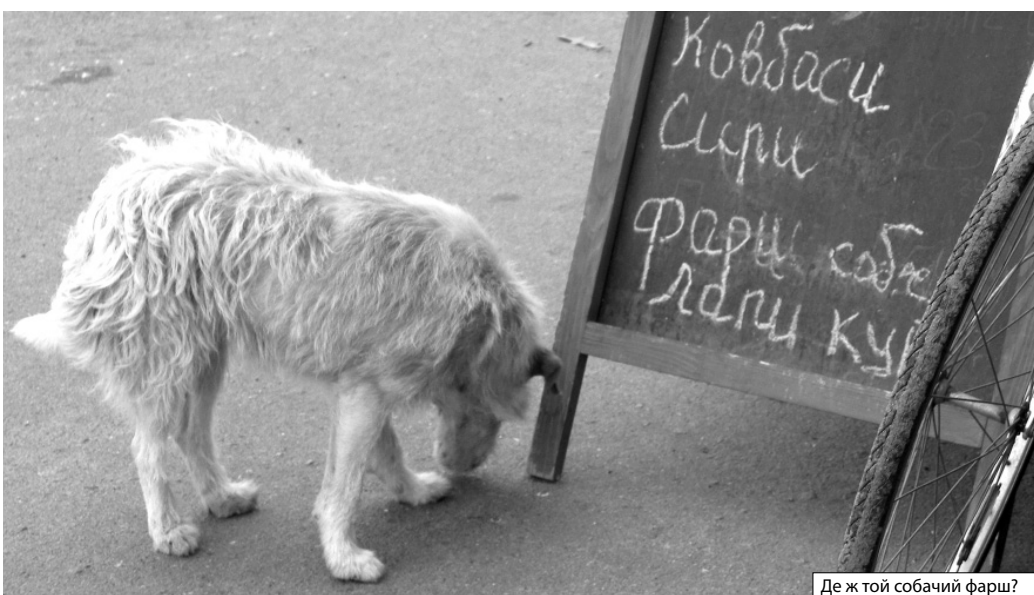 Ковбаси
Сири
Фарш соб
Лапи ку
Де ж той собачий фарш?